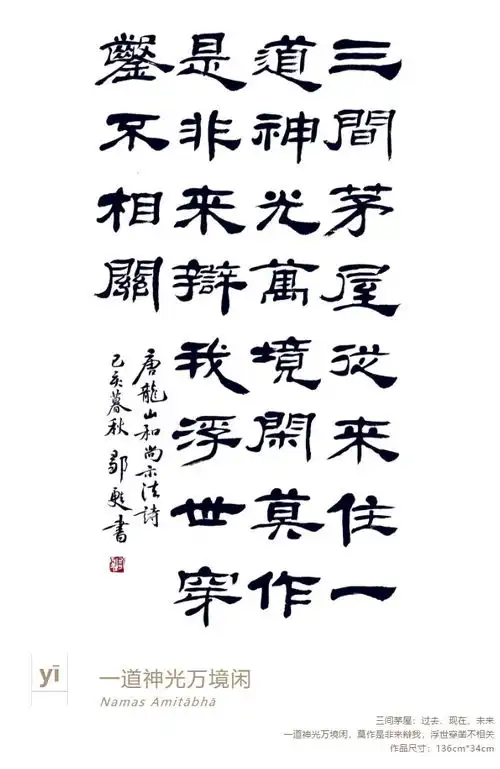 三間茅屋從来住一
道神光萬境閑莫作
是非来辯我浮世穿
鑿不相關
唐龍山和尚示法詩
己亥暮秋 書
yī
一道神光万境闲
Namas Amitābhā
三间茅屋：过去、现在、未来
一道神光万境闲，莫作是非来辩我，浮世穿凿不相关
作品尺寸：136cm*34cm